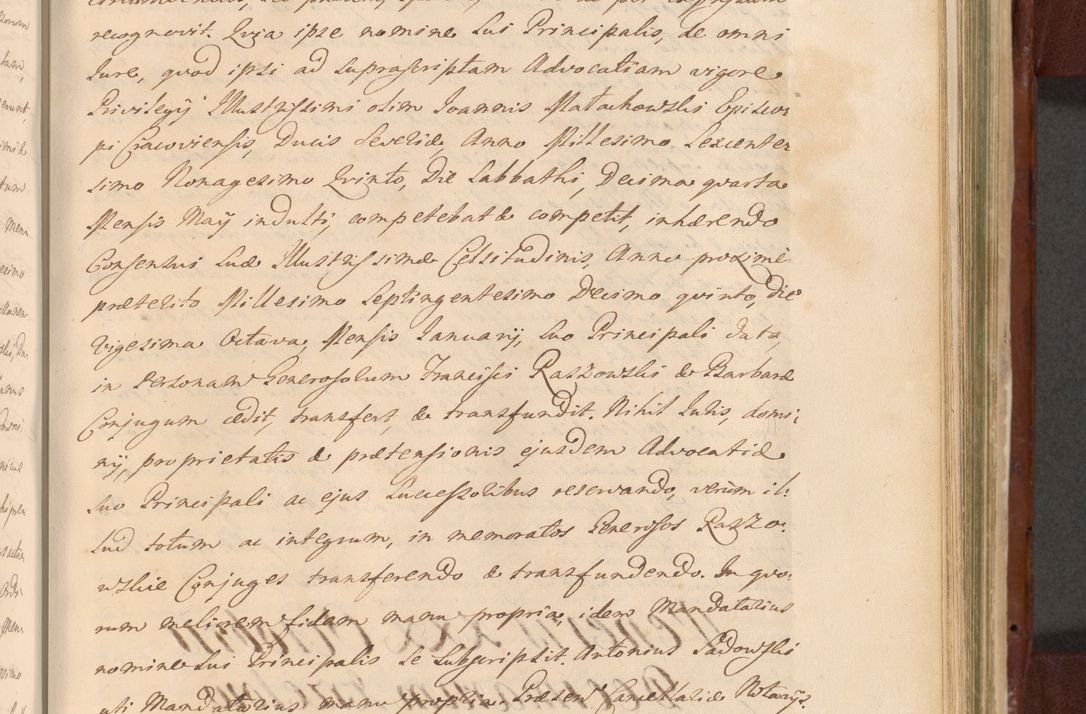 recognovit. Quia ipse nomine sui Principalis, de omni
Iure, quod ipsi ad suprascriptam Advocatiam vigore
Privilegij Illustrissimi olim Ioannis Małachowski Episco
pi Cracoviensis, Ducis Severiæ Anno Millesimo Sexcente
simo Nonagesimo Quinto, Die Sabbathi, Decima quarta
Mensis Maij indulti, competebat & competit, inhærendo
Consensui suæ Illustrissimæ Celsitudinis, Anno proximè
præterito Millesimo Septingentesimo Decimo quinto, Die
Vigesima Octava, Mensis Ianuarij, suo Principali data,
in Personam Generosorum Francisci Raszowski & Barbaræ
Conjugum cedit, transfert, & transfundit. Nihil Iuris, domi:
nij, proprietatis & prætensionis ejusdem Advocatiæ
suo Principali ac ejus Successoribus reservando, verùm il:
lud totum ac integrum, in memoratos Generosos Raszo:
wskie Conjuges transferendo & transfundendo. In quo:
rum meliorem fidem manu propria, idem Mandatarius
nomine sui Principalis se subscripsit. Antonius Sadowski
uti Mandatarius manu propria. Præsens Cancellariæ Notarijs.